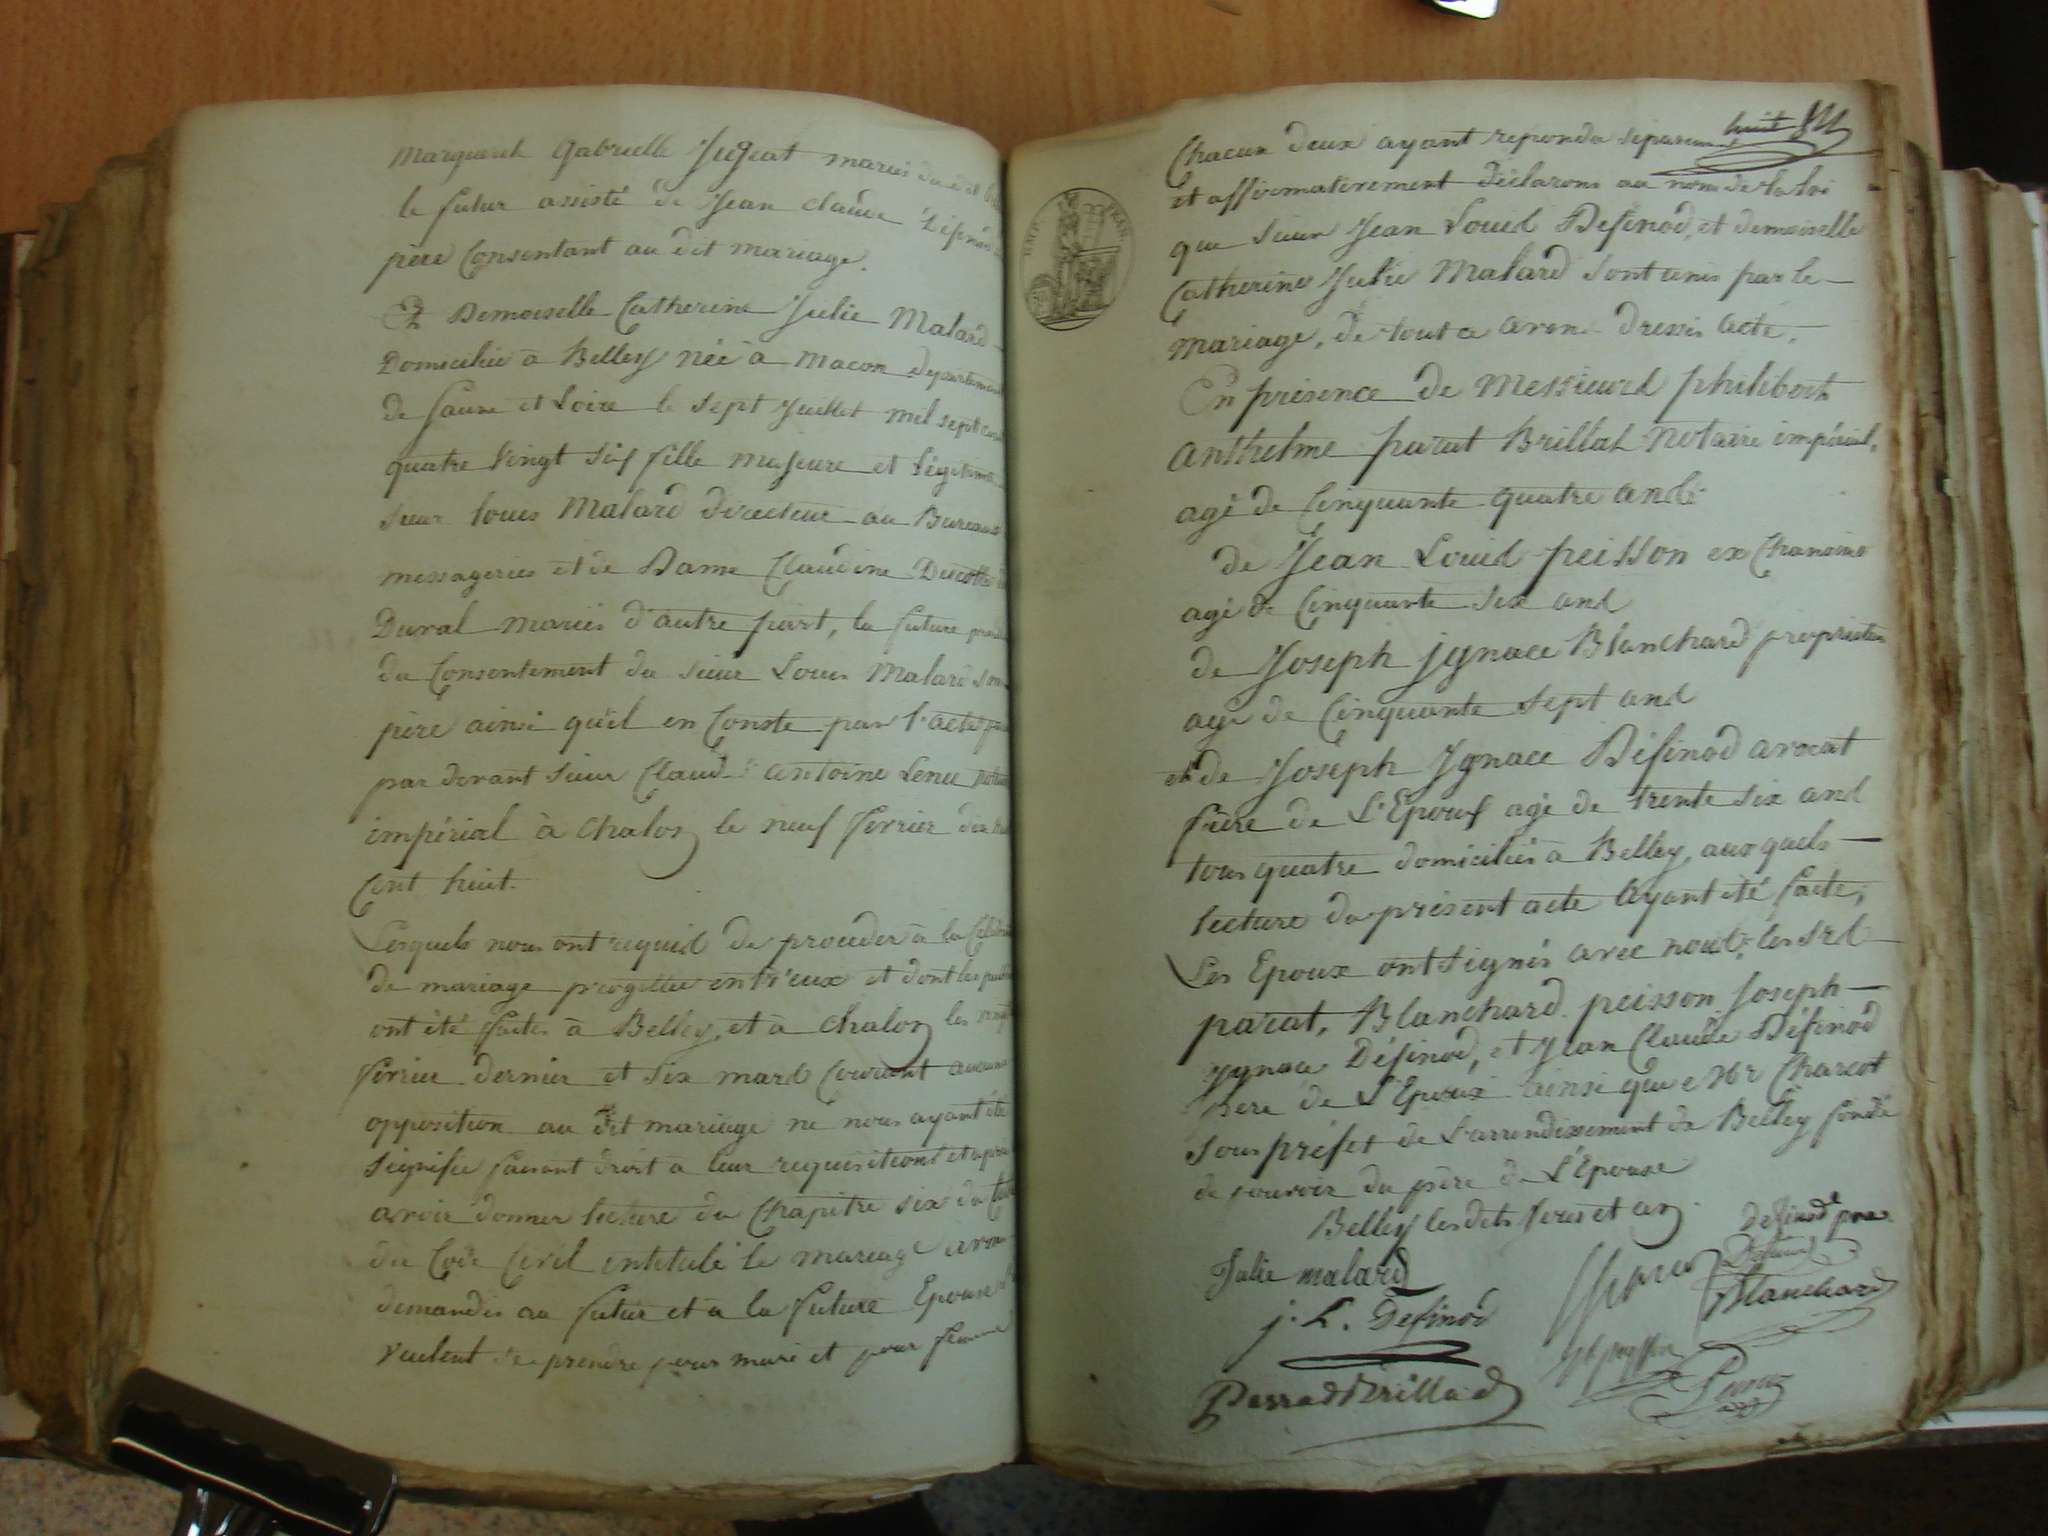 Marguerite Gabrielle Jugeat mariés du dit
le futur assisté de Jean Claude Définod
père Consentant au dit mariage.
Et Demoiselle Catherine Julie Malard
Domiciliée à Belley née à Macon département
de Saone et Loire le sept Juillet mil sept cent
quatre vingt six fille majeure et légitime
sieur Louis Malard directeur au Bureau
messageries et de Dame Claudine
Duval mariés d'autre part, la future
du Consentement du sieur Louis Malard son
père ainsi qu'il en Conste par l'acte
par devant sieur Claude antoine Lenu
impérial à Chalon le neuf fevrier dix huit
Cent huit.
Lesquels nous ont requid de proceder à la
de mariage progettée entr'eux et dont les
ont été faites à Belley, et à Chalon les
fevrier dernier et six mard Courant aucune
opposition au dit mariage ne nous ayant été
signifié faisant droit a leur requisitions et après
avoir donner lecture du Chapitre six du
du Code Civil intitulé le mariage avons
demandés au futur et a la future Epouse
veulent se prendre pour mari et pour femme
huit
Chacun deux ayant repondu séparement
et affirmativement déclarons au nom de la loi
que sieur Jean Louid Definod, et demoiselle
Catherine Julie Malard sont unis par le
mariage, de tout a avons dressés acte.
EMP. FRAN.
En présence de Messieurd philibert
anthelme parat Brillat Notaire impérial,
agé de Cinquante quatre and
de Jean Louid peisson ex Chanoine
agé de Cinquante six and
de Joseph jgnace Blanchard propriétaire
agé de Cinquante sept and
et de Joseph Ygnace Définod avocat
frère de L'Epoux agé de trente six and
tous quatre domiciliés à Belley, auxquels
lecture du présent acte ayant été faite,
Les Epoux ont signés avec nous, les srd
parat, Blanchard, peisson, Joseph
ygnace Définod, et Jean Claude Définod
père de L'Epoux ainsi que Mr Charcot
sous préfet de L'arrondissement de Belley fondé
de pouvoir du père de L'Epouse
Belley les dits jours et an
Definod pere
Julie malard
Blanchard
j. L. Definod